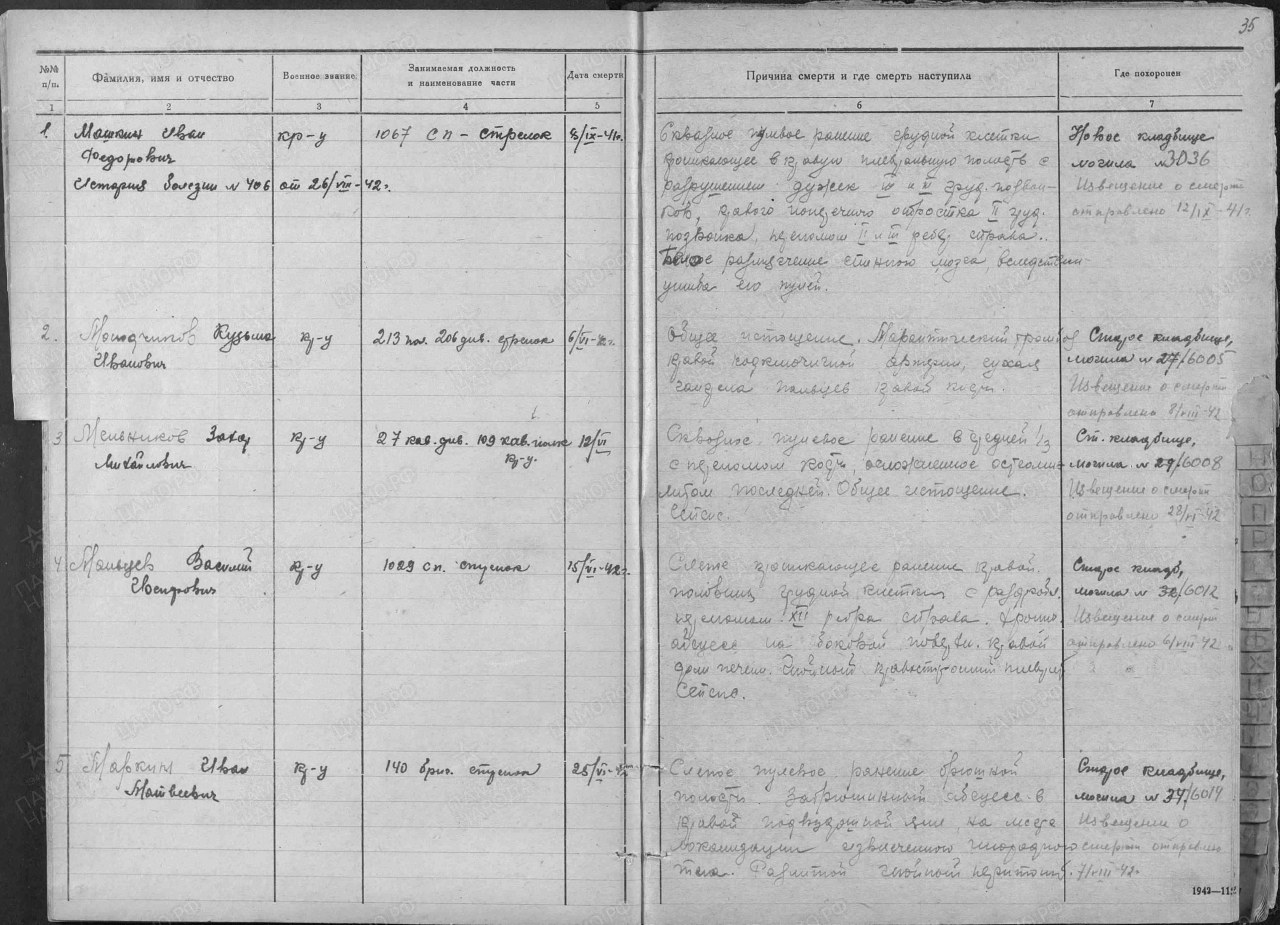 35
№№ п/п.
Фамилия, имя и отчество
Военное звание
Занимаемая должность
и наименование части
Дата смерти
Причина смерти и где смерть наступила
Где похоронен
1 2 3 4 5 6 7
1. Машкин Иван
Федорович
История болезни № 406 от 26/VIII-42г.
кр-у
1067 СП - стрелок
8/IX-41г.
Сквозное пулевое ранение грудной клетки
проникающее в правую плевральную полость с
разрушением дужек
ков, правого поперечного отростка II груд.
позвонка, переломом II и III ребер справа.
размягчение спинного мозга, вследствии
ушиба его пулей.
Новое кладбище
могила №3036
Извещение о смерти
отправлено 12/IX-41г.
2. Кузьма
Иванович
кр-у
213 пол. 206 див. стрелок
6/VI-
Общее истощение. Марантический тромбоз
правой подключичной артерии, сухая
гангрена пальцев правой кисти.
Старое кладбище,
могила № 27/6005
Извещение о смерти
отправлено 8/VIII-42
3 Мельников Захар
Михайлович
кр-у
27 кав. див. 109 кав. полк
кр-у.
12/VI
Сквозное пулевое ранение в средней 1/3
с переломом кости осложненное остеоми-
литом последней. Общее истощение.
Сепсис.
Ст. кладбище,
могила № 29/6008
Извещение о смерти
отправлено 28/VI-42
4. Мальцев Василий
кр-у
1029 сп. стрелок
15/VI-42г.
Слепое проникающее ранение правой
половины грудной клетки с раздробл.
переломом XII ребра справа.
абсцесс на боковой поверхн. правой
доли печени. Гнойный правосторонний плеврит
Сепсис.
Старое кладб,
могила № /6012
Извещение о смерти
отправлено 6/VIII-42
5 Маркин Иван
Матвеевич
кр-у
140 бриг. стрелок
25/VI-42
Слепое пулевое ранение брюшной
полости. Забрюшинный абсцесс в
правой подвздошной яме, на месте
локализации извлеченного инородного
тела. Разлитой гнойный перитонит.
Старое кладбище,
могила № 34/6014
Извещение о
смерти отправлено
7/VIII-42г.
1942—11
Н
О
П
Р